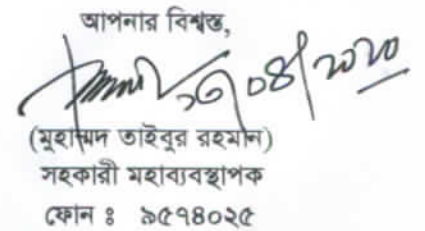 আপনার বিশ্বস্ত,
(মুহাম্মদ তাইবুর রহমান)
সহকারী মহাব্যবস্থাপক
ফোন ঃ ৯৫৭৪০২৫